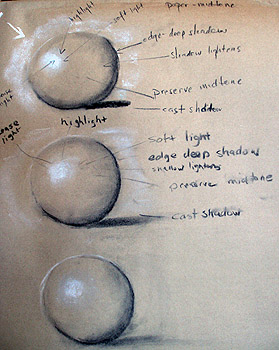 highlight
soft light
paper-midtone
edge-deep shadow
shadow lightens
light
preserve midtone
cast shadow
highlight
light
soft light
edge deep shadow
shadow lightens
preserve midtone
cast shadow